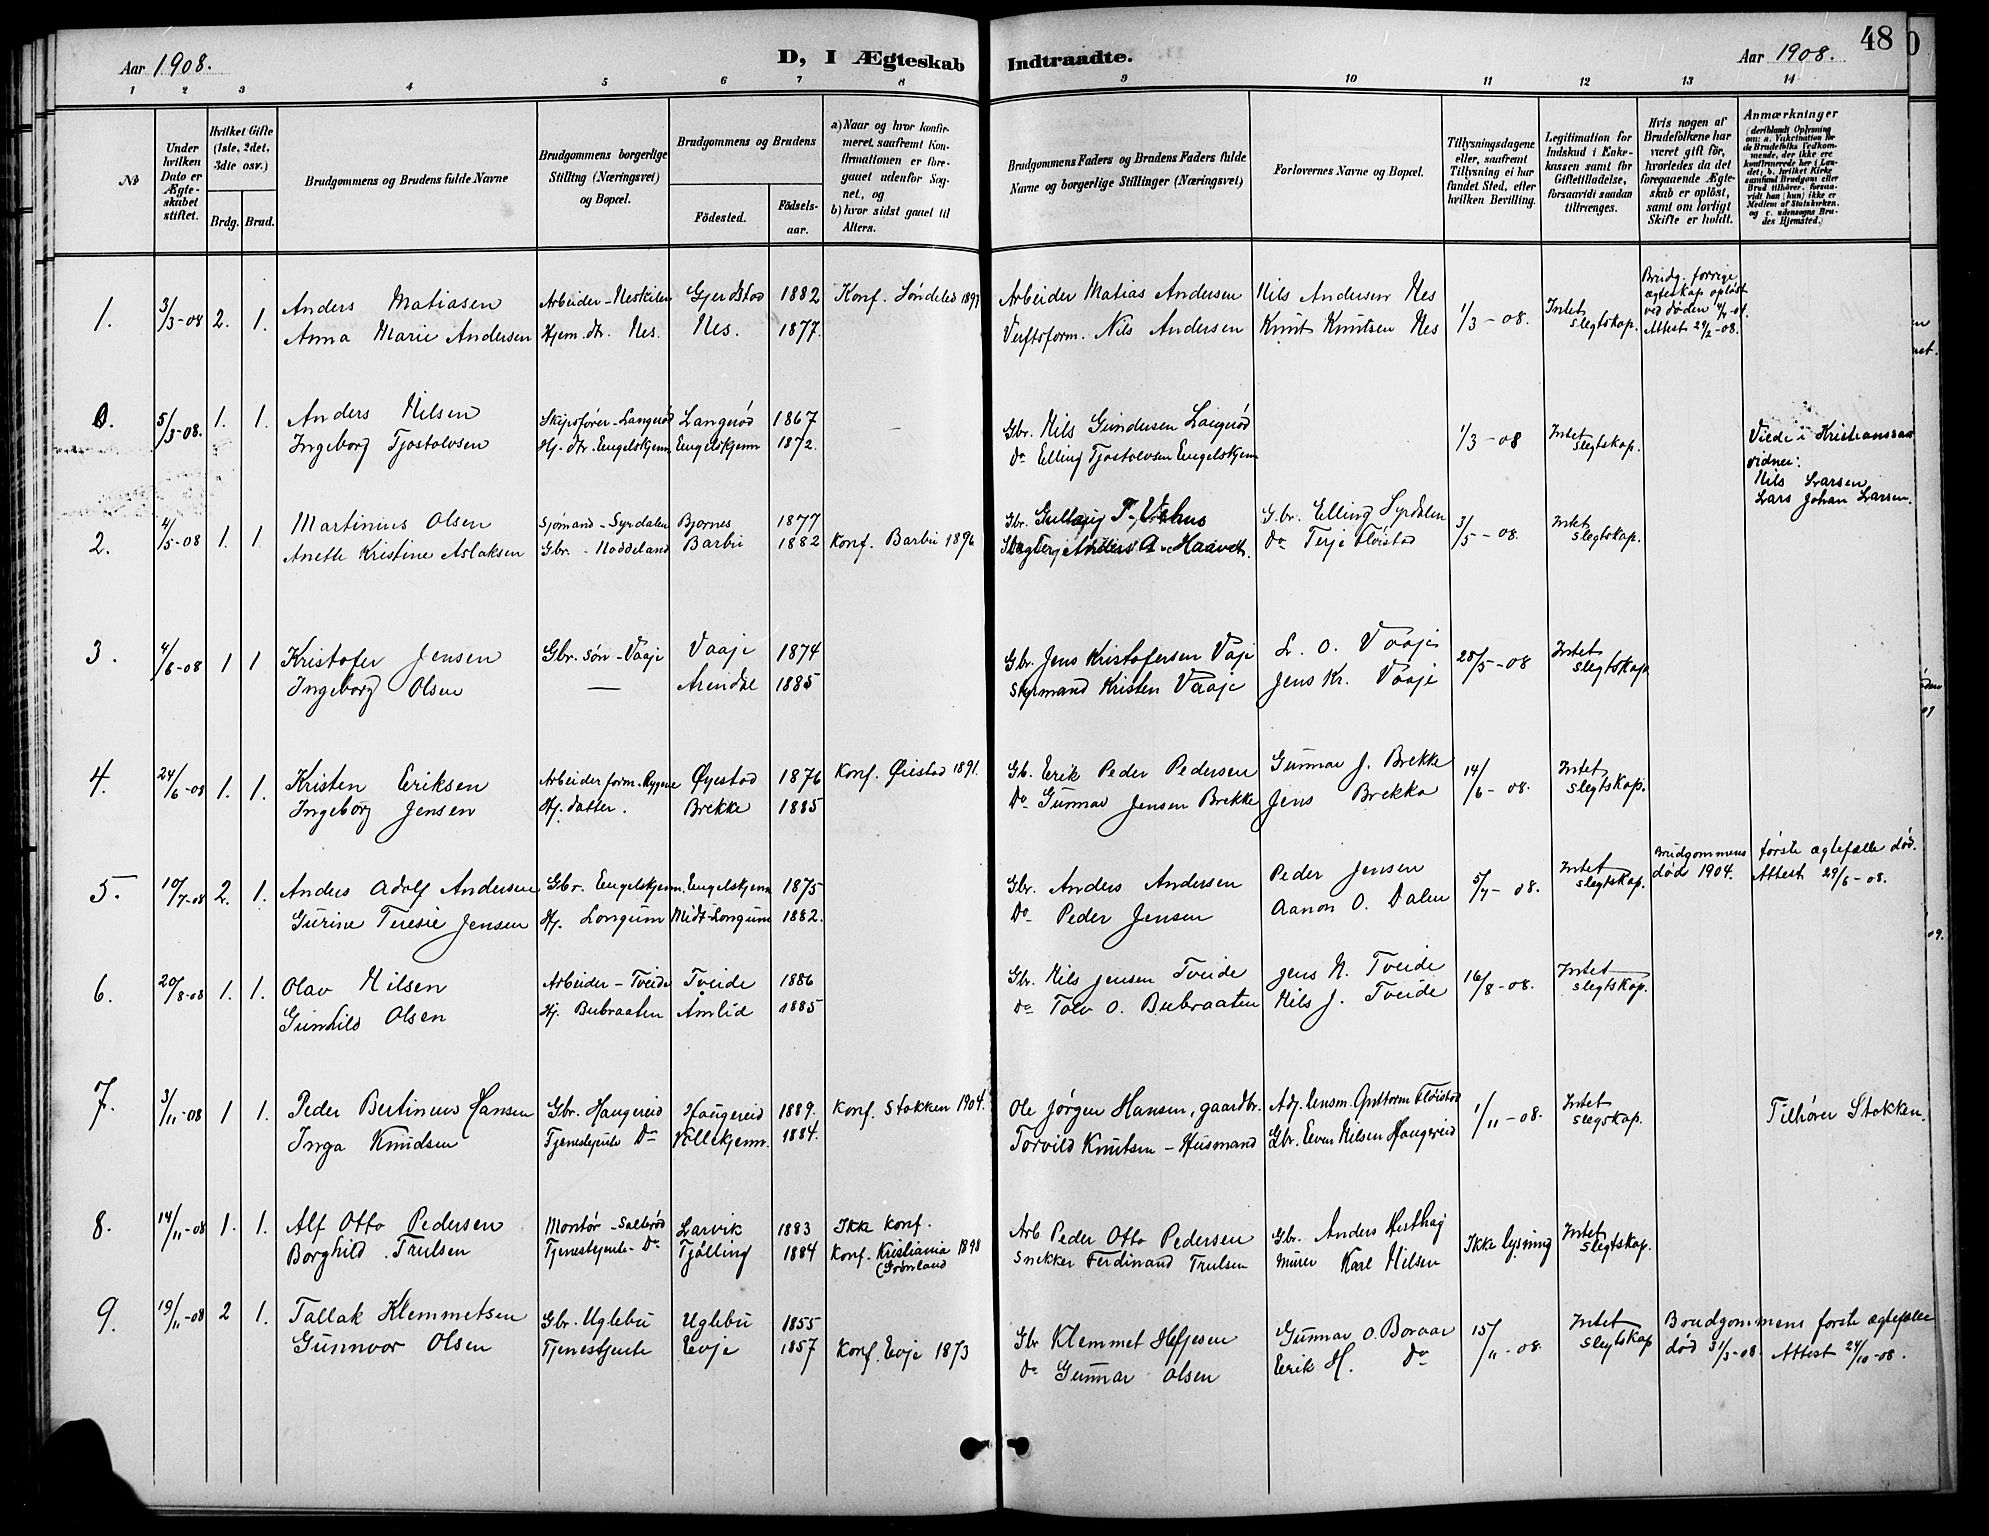 Aar 1908.
D, I Ægteskab Indtraadte.
Aar 1908.
48
1 2 3 4 5 6 7 8 9 10 11 12 13 14
No
Under hvilken Dato er Ægteskabet stiftet.
Hvilket Gifte (1ste, 2det, 3die osv.)
Brdg. Brud.
Brudgommens og Brudens fulde Navne
Brudgommens borgerlige Stilling (Næringsvei) og Bopæl.
Brudgommens og Brudens
Födested.
Födsels-aar.
a) Naar og hvor konfirmeret, saafremt Konfirmationen er foregaaet udenfor Sognet, og
b) hvor sidst gaaet til Alters.
Brudgommens Faders og Brudens Faders fulde Navne og borgerlige Stillinger (Næringsvei)
Forlovernes Navne og Bopæl.
Tillysningsdagene eller, saafremt Tillysning ei har fundet Sted, efter hvilken Bevilling.
Legitimation for Indskud i Enkekassen samt for Giftetilladelse, forsaavidt saadan tiltrænges.
Hvis nogen af Brudefolkene har været gift för, hvorledes da det foregaaende Ægteskab er oplöst, samt om lovligt Skifte er holdt.
Anmærkninger
(deriblandt Oplysning om: a. Vakcination for de Brudefolks Vedkommende, der ikke ere konfirmerede her i Landet; b. hvilket Kirkesamfund Brudgom eller Brud tilhører, forsaavidt han (hun) ikke er Medlem af Statskirken, og c. udensogns Brudes Hjemsted.)
1. 3/3-08 2. 1. Anders Matiasen Arbeider-Neskilen Gjerdstad 1882 Konf. Søndeled 1897 Arbeider Matias Andersen Nils Andersen Nes 1/3-08. Intet slegtskap. Brudg. forrige ægteskap opløst ved døden Attest 29/2-08.
Anna Marie Andersen Hjem.dtr. Nes. Nes. 1877. Verftsform. Nils Andersen Knut Knutsen Nes
0. 5/3-08. 1. 1. Anders Nilsen Skipsfører-Langerød Langerød 1867 Gbr. Nils Gundersen Langerød 1/3-08 Intet slegtskap. Viede i Kristianssan vidner: Nils Larsen Lars Johan Larsen.
Ingeborg Tjostolvsen Hj. dtr. Engelskjenn Engelskjenn 1872. Do Elling Tjostolvsen Engelskjenn
2. 4/5-08 1. 1. Martinius Olsen Sjømand-Syrdalen Bjornes 1877 Gbr. G.br. Elling Syrdalen 3/5-08. Intet slegtskap.
Anette Kristine Aslaksen Gbr.-Noddeland Barbu 1882 Konf. Barbu 1896 Do Terje Fløistad
3. 4/6-08 1 1 Kristofer Jensen Gbr. søn-Vaaje Vaaje 1874 Gbr. Jens Kristofersen Vaje L. O. Vaaje 28/5-08 Intet slegtskap.
Ingeborg Olsen — Arendal 1885 Styrmand Kristen Vaaje Jens Kr. Vaaje
4. 24/6-08 1. 1. Kristen Eriksen Arbeiderform.-Rygene Øyestad 1876 Konf. Øiestad 1891. Gb. Erik Peder Pedersen Gunnar J. Brekke 14/6-08. Intet slegtskap.
Ingeborg Jensen Hj. datter. Brekke 1885 Do Gunnar Jensen Brekke Jens Brekka
5. 10/7-08 2. 1. Anders Adolf Andersen Gbr. Engelskjenn. Engelskjenn 1875 Gbr. Anders Andersen Peder Jensen 5/7-08. Intet slegtskap. Brudgommens første ægtefælle død. død 1904. Attest 29/6-08.
Gurine Teresie Jensen Hj. Longum Midt-Longum 1882. Do Peder Jensen Aanon O. Dalen
6. 20/8-08 1. 1. Olav Nilsen Arbeider-Tveide Tveide 1886 Gbr. Nils Jensen Tveide Jens N. Tveide 16/8-08. Intet slegtskap.
Gunhild Olsen Hj. Bubraaten Åmlid 1885 Do Talv O. Bubraaten Nils J. Tveide
7. 3/11-08 1 1. Peder Bertineus Hansen Gbr. Haugereid Haugereid 1889. Konf. Stokken 1904. Ole Jørgen Hansen, gaardbr. Adj. lensm. Guttorm Fløistad 1/11-08. Intet slegskap. Tilhører Stokken.
Inga Knudsen Tjenestejente Do 1884. Torvild Knutsen-Husmand Gbr. Even Nilsen Haugereid
8. 14/11-08 1. 1. Alf Otto Pedersen Montør-Salterød Larvik 1883 Ikke konf. Arb Peder Otto Pedersen Gbr. Anders Hesthag Ikke lysning Intet slegtskap.
Borghild Trulsen Tjenestejente-Do Tjølling 1884 Konf. Kristiania 1898 (Grønland Snekker Ferdinand Trulsen Murer Karl Nilsen
9. 19/11-08 2 1. Tallak Klemmetsen Gbr. Uglebu Uglebu 1855 Gbr Klemmet Hefjesen Gunnar O. Boraas 15/11-08. Intet slegtskap Brudgommens første ægtefælle død 31/3-08. Attest 24/10-08.
Gunnvor Olsen Tjenestjente Evje 1857 Konf. Evje 1873 Do Gunnar Olsen Eerik H. Do